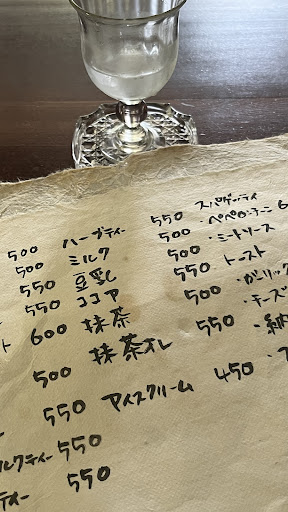 500
500
550
550
ト 600
500
550
ルクティー 550
ティー 550
ハーブティー 550
ミルク 500
豆乳 550
ココア
抹茶 500
抹茶オレ 550
アイスクリーム 450
スパゲッティ
・ペペロンチーニ 6
・ミートソース
トースト
・ガーリック
・チーズ
・納